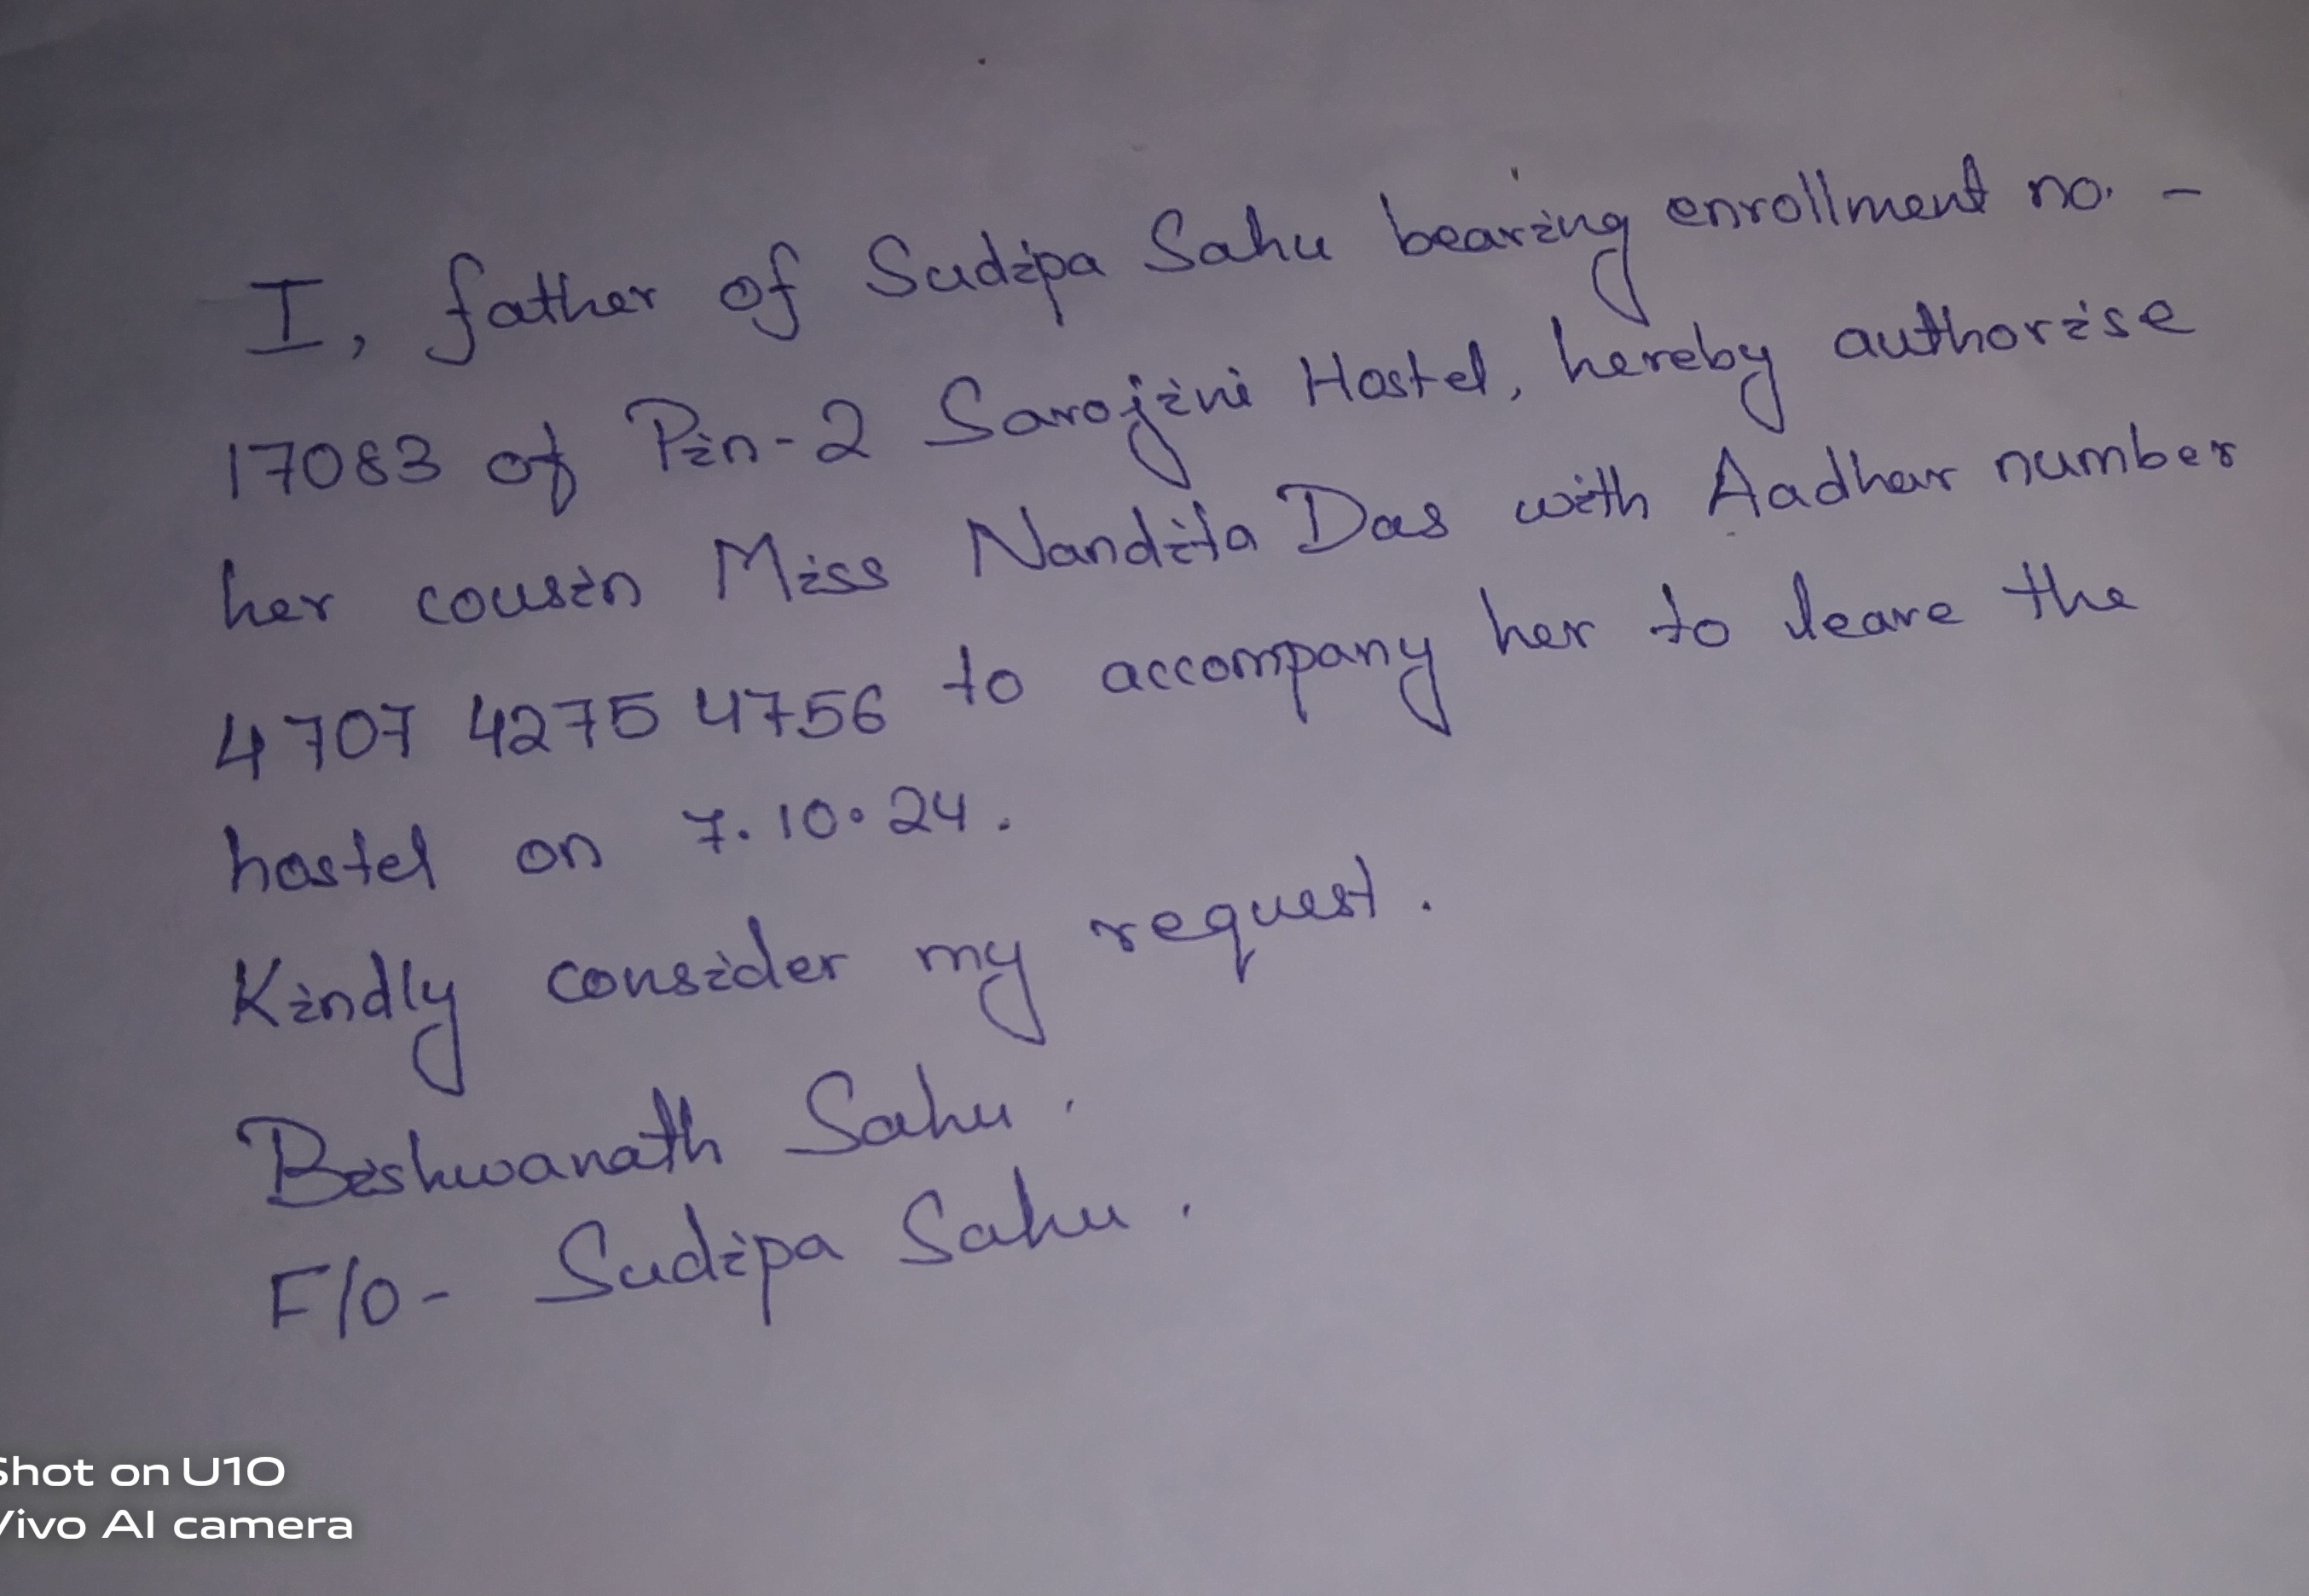 I, father of Sudipa Sahu bearing enrollment no. -
17083 of Pin-2 Sarojini Hostel, hereby authorise
her cousin Miss Nandita Das with Aadhar number
4707 4275 4756 to accompany her to leave the
hostel on 7.10.24.
Kindly consider my request.
Bishwanath Sahu.
F/O- Sudipa Sahu.
Shot on U10
Vivo AI camera